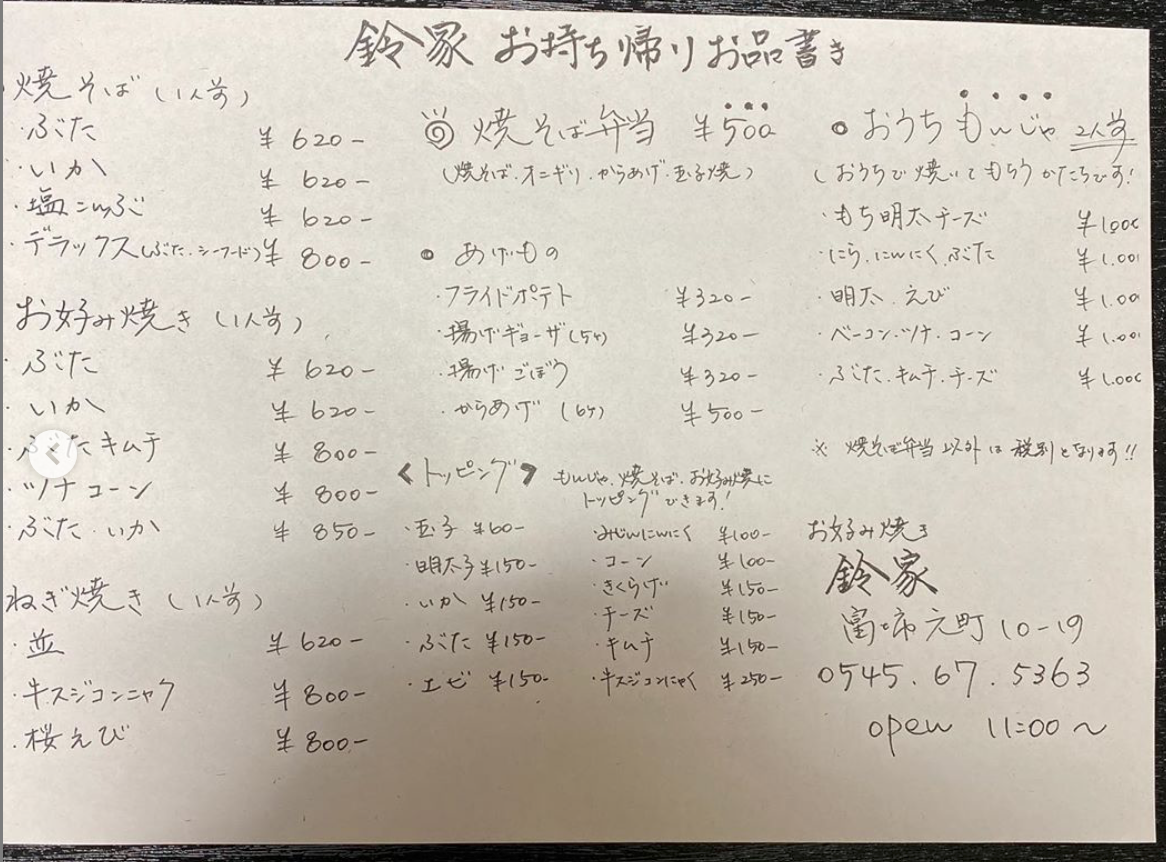 鈴家 お持ち帰りお品書き
焼そば (1人前)
・ぶた ¥620-
・いか ¥620-
・塩こんぶ ¥620-
・デラックス(ぶた.シーフード) ¥800-
お好み焼き (1人前)
・ぶた ¥620-
・いか ¥620-
・ぶたキムチ ¥800-
・ツナコーン ¥800-
・ぶた.いか ¥850-
ねぎ焼き (1人前)
・並 ¥620-
・牛スジコンニャク ¥800-
・桜えび ¥800-
焼そば弁当 ¥500
(焼そば.オニギリ.からあげ.玉子焼)
● あげもの
・フライドポテト ¥320-
・揚げギョーザ(5ヶ) ¥320-
・揚げごぼう ¥320-
・からあげ (6ヶ) ¥500-
<トッピング> もんじゃ.焼そば.お好み焼に
トッピングできます!
・玉子 ¥60-
・明太子 ¥150-
・いか ¥150-
・ぶた ¥150-
・エビ ¥150-
・みじんにんにく ¥100-
・コーン ¥100-
・きくらげ ¥150-
・チーズ ¥150-
・キムチ ¥150-
・牛スジコンにゃく ¥250-
● おうちもんじゃ 2人前
(おうちで焼いてもらうかたちです!
・もち明太チーズ ¥1.000
・にら.にんにく.ぶた ¥1.00
・明太.えび ¥1.00
・ベーコン.ツナ.コーン ¥1.00
・ぶた.キムチ.チーズ ¥1.000
※ 焼そば弁当以外は税別となります!!
お好み焼き
鈴家
富士市元町10-19
0545.67.5363
open 11:00~